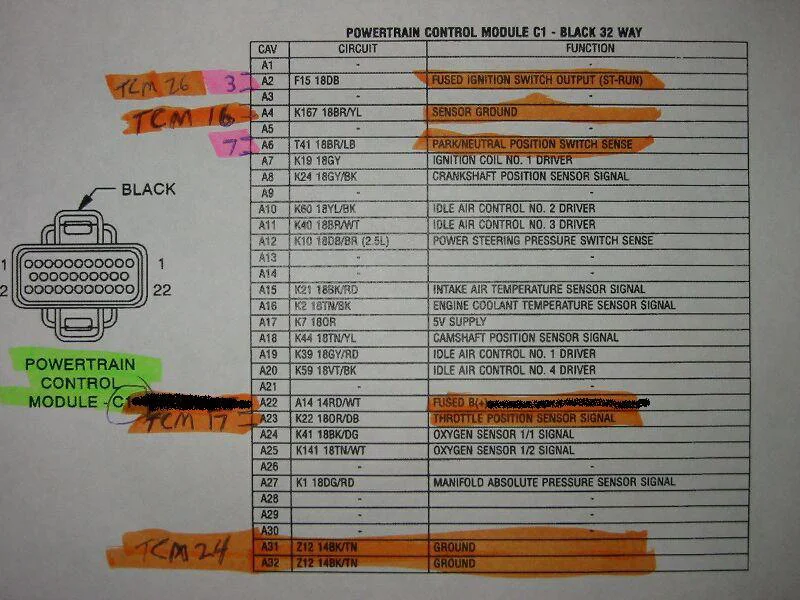 POWERTRAIN CONTROL MODULE C1 - BLACK 32 WAY
CAV CIRCUIT FUNCTION
A1 - -
TCM 26 3 A2 F15 18DB FUSED IGNITION SWITCH OUTPUT (ST-RUN)
A3 - -
TCM 16 A4 K167 18BR/YL SENSOR GROUND
A5 - -
7 A6 T41 18BR/LB PARK/NEUTRAL POSITION SWITCH SENSE
A7 K19 18GY IGNITION COIL NO. 1 DRIVER
A8 K24 18GY/BK CRANKSHAFT POSITION SENSOR SIGNAL
BLACK
A9 - -
A10 K60 18YL/BK IDLE AIR CONTROL NO. 2 DRIVER
A11 K40 18BR/WT IDLE AIR CONTROL NO. 3 DRIVER
A12 K10 18DB/BR (2.5L) POWER STEERING PRESSURE SWITCH SENSE
A13 - -
1 1
A14 - -
2 22
A15 K21 18BK/RD INTAKE AIR TEMPERATURE SENSOR SIGNAL
A16 K2 18TN/BK ENGINE COOLANT TEMPERATURE SENSOR SIGNAL
A17 K7 18OR 5V SUPPLY
A18 K44 18TN/YL CAMSHAFT POSITION SENSOR SIGNAL
A19 K39 18GY/RD IDLE AIR CONTROL NO. 1 DRIVER
POWERTRAIN
A20 K59 18VT/BK IDLE AIR CONTROL NO. 4 DRIVER
CONTROL
A21 - -
MODULE - C1
A22 A14 14RD/WT FUSED B(+)
TCM 17 A23 K22 18OR/DB THROTTLE POSITION SENSOR SIGNAL
A24 K41 18BK/DG OXYGEN SENSOR 1/1 SIGNAL
A25 K141 18TN/WT OXYGEN SENSOR 1/2 SIGNAL
A26 - -
A27 K1 18DG/RD MANIFOLD ABSOLUTE PRESSURE SENSOR SIGNAL
A28 - -
A29 - -
A30 - -
TCM 24 A31 Z12 14BK/TN GROUND
A32 Z12 14BK/TN GROUND